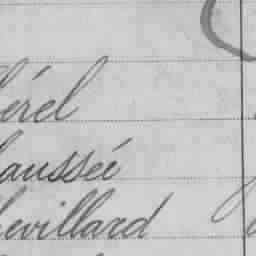 hérel
haussée
hevillard